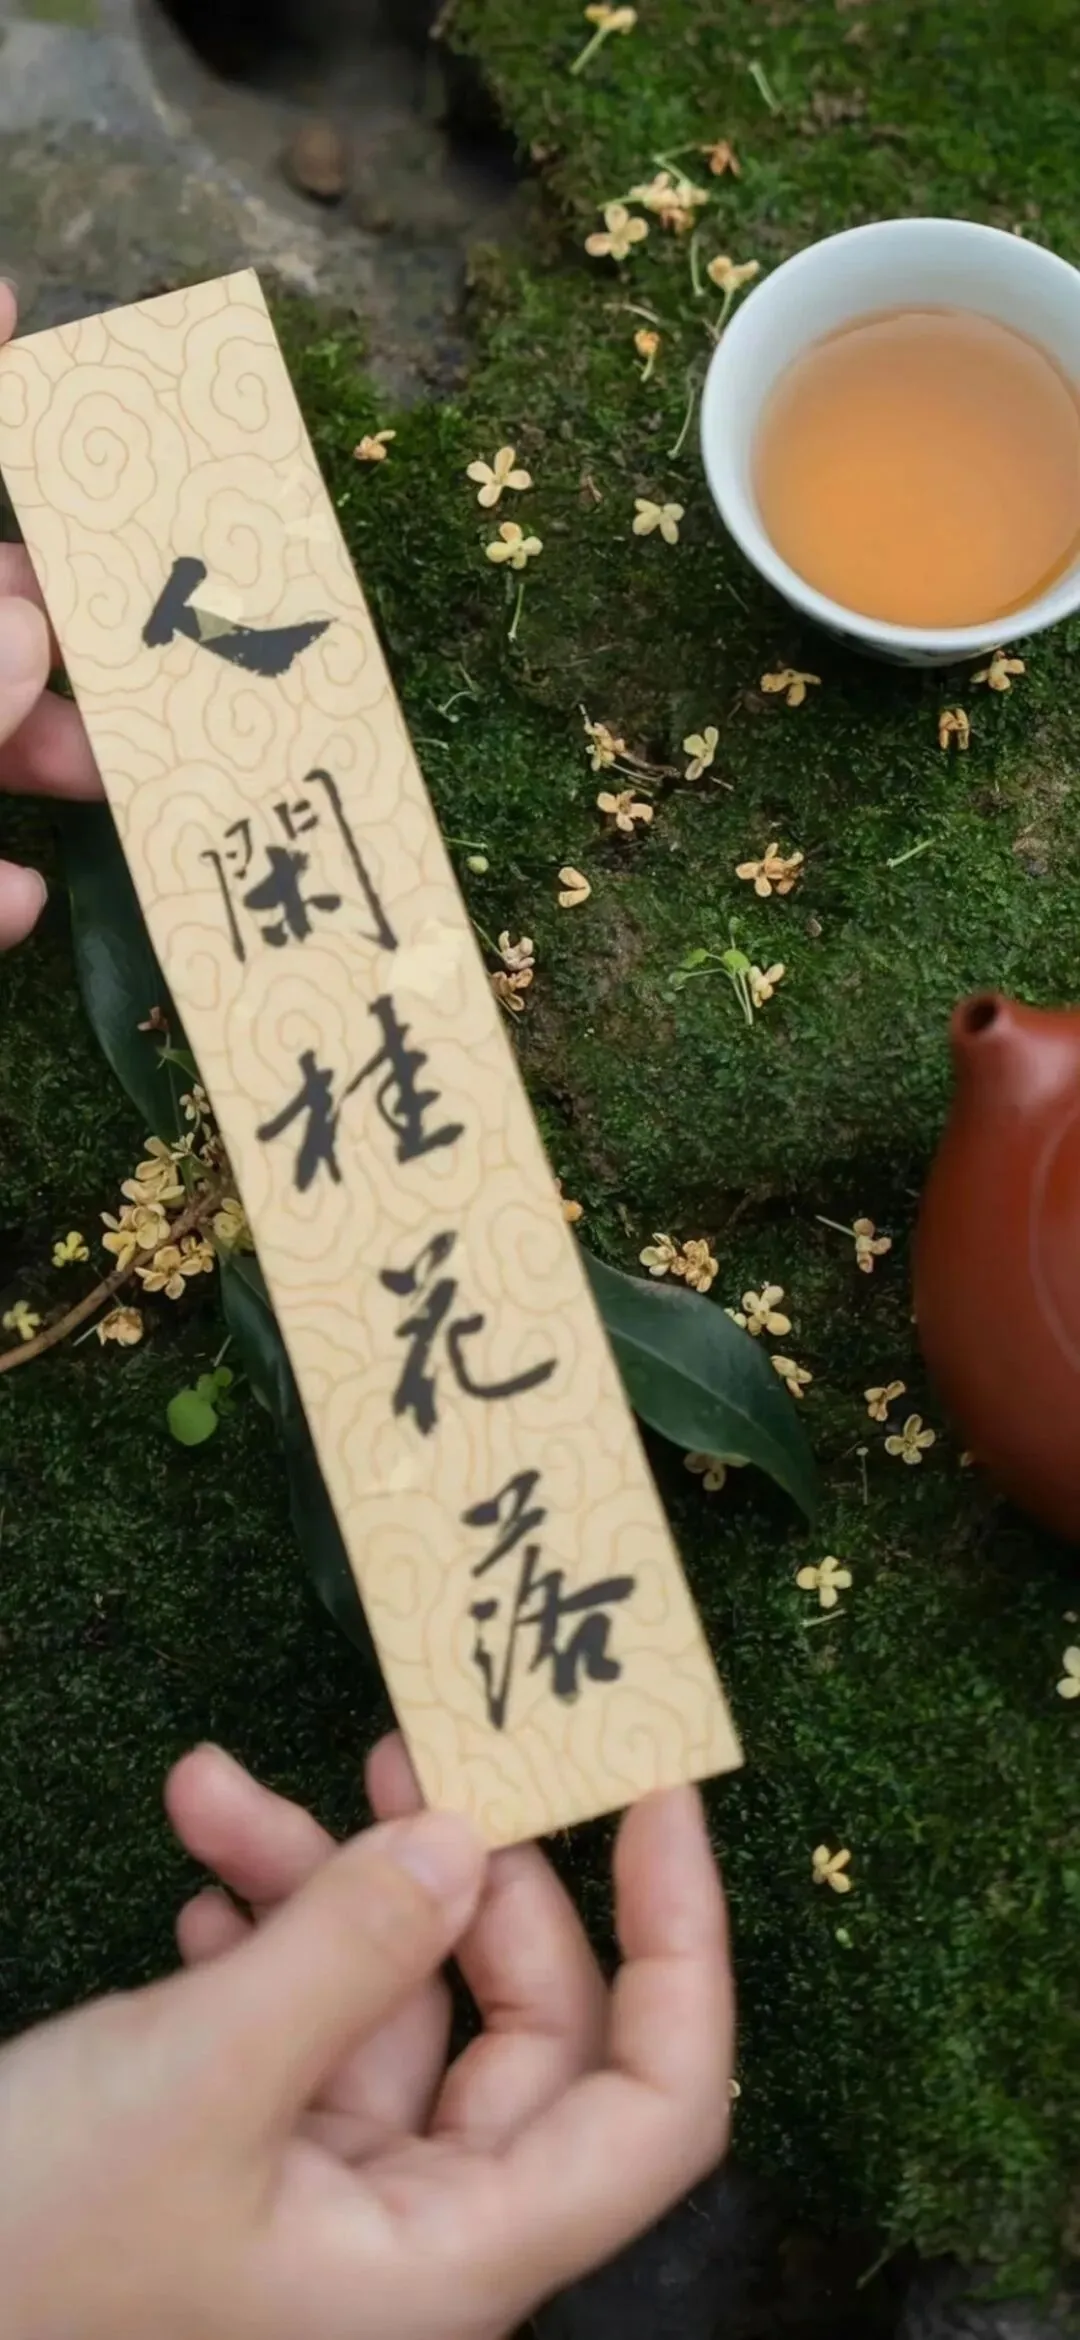 人閑桂花落